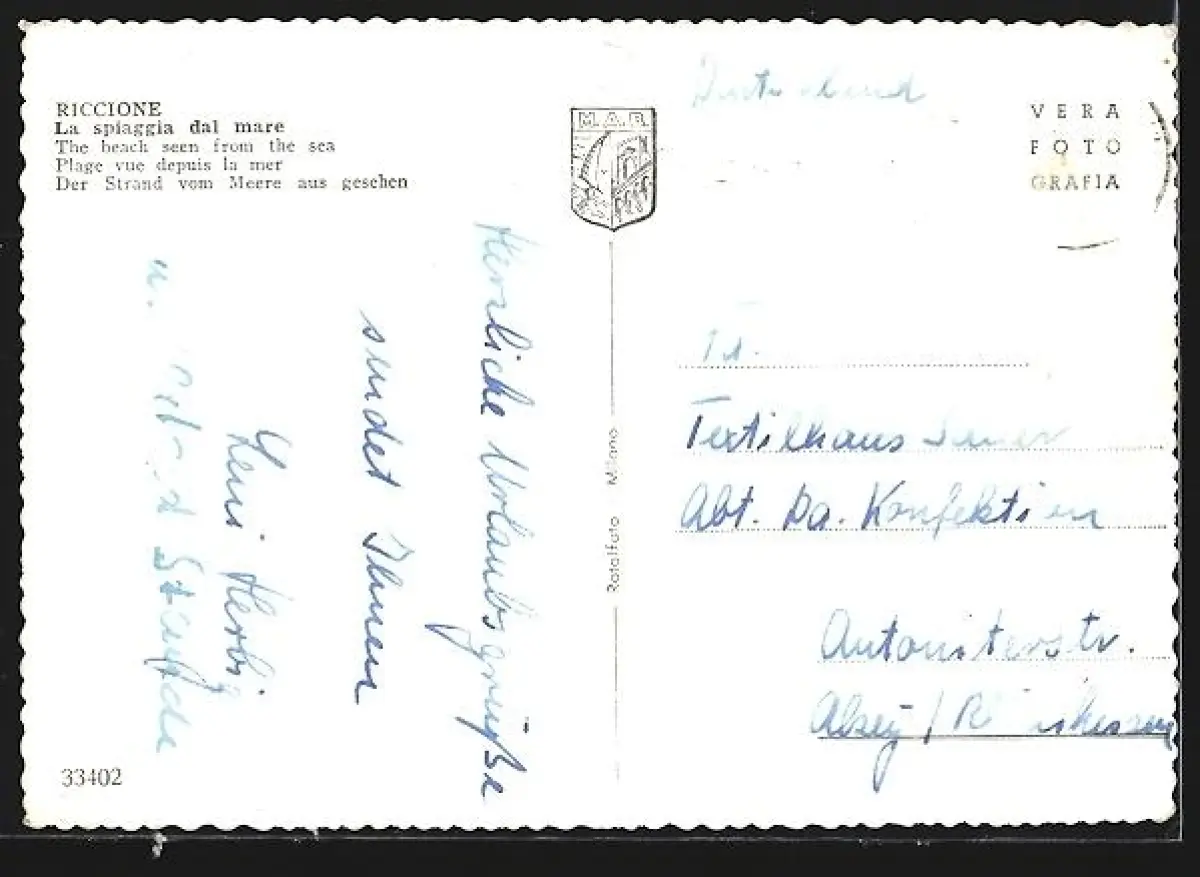 RICCIONE
La spiaggia dal mare
The beach seen from the sea
Plage vue depuis la mer
Der Strand vom Meere aus gesehen
Herzliche Urlaubsgrüße
sendet Ihnen
u.
33402
M.A.R.
Rotalfoto Milano
Deutschland
VERA
FOTO
GRAFIA
Textilhaus
Abt. Da. Konfektion
Antoniterstr.
Alzey / Rheinhessen